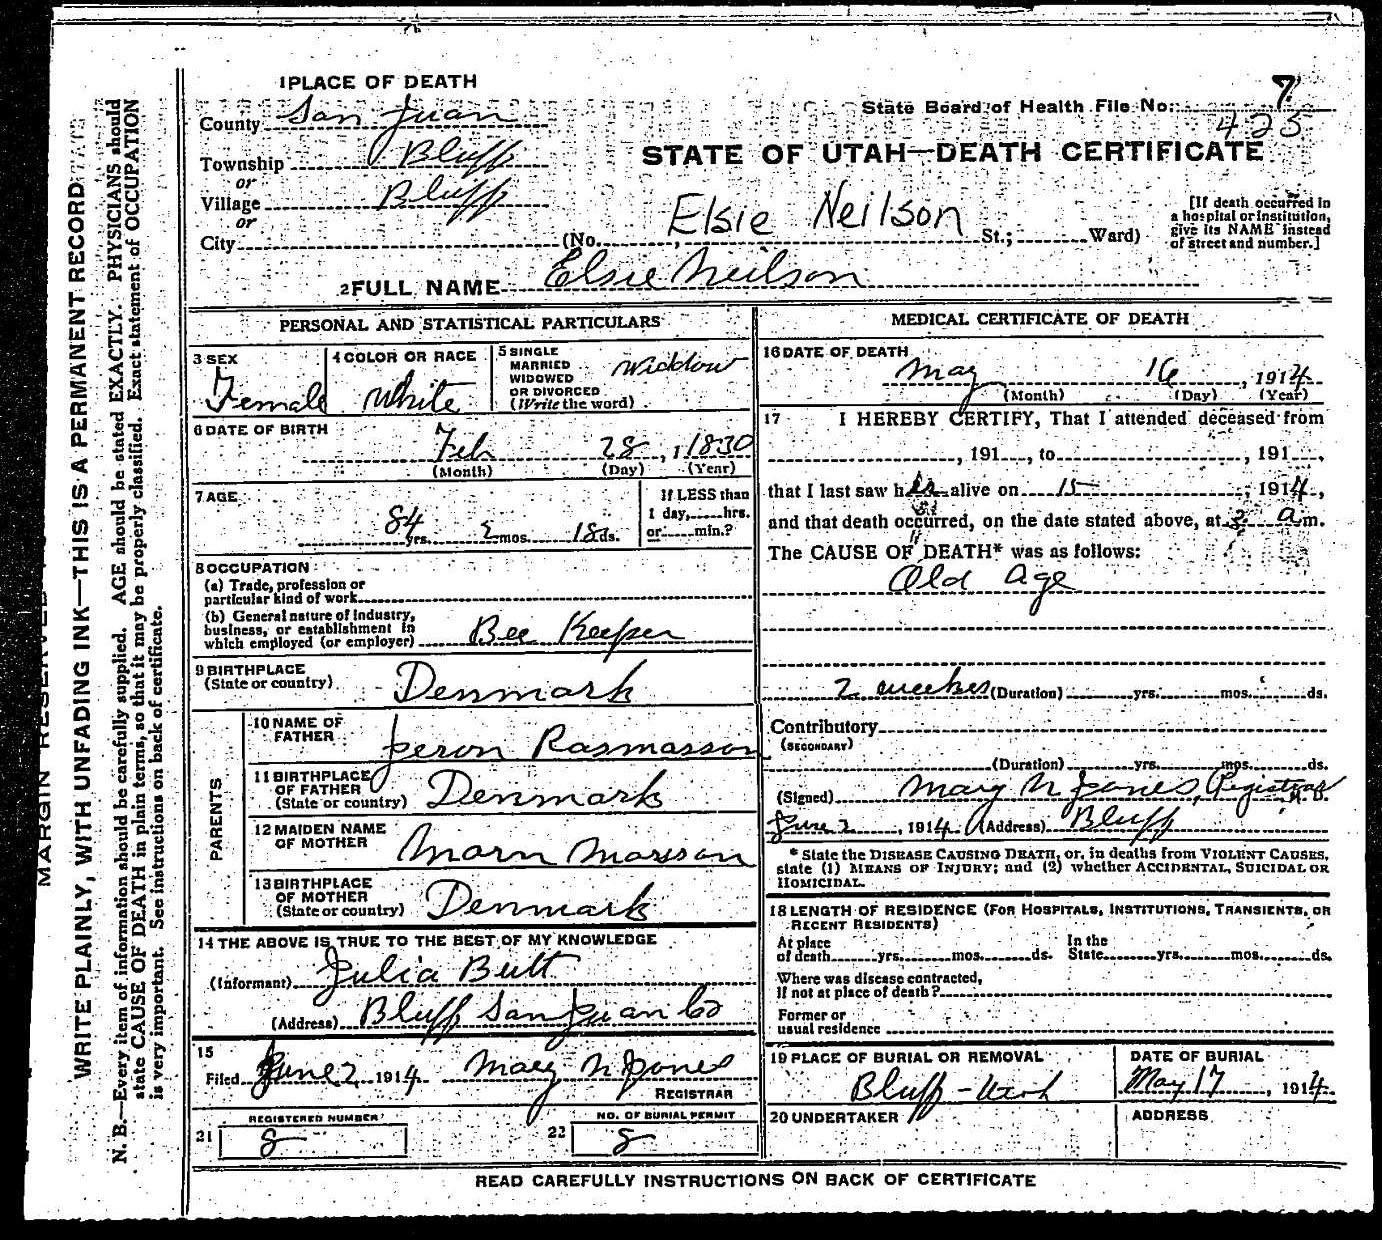 1 PLACE OF DEATH
County San Juan
State Board of Health File No. 7
423
Township Bluff
or
Village Bluff
or
City (No. , St.; Ward)
STATE OF UTAH—DEATH CERTIFICATE
Elsie Neilson
[If death occurred in
a hospital or institution,
give its NAME instead
of street and number.]
2 FULL NAME Elsie Neilson
PERSONAL AND STATISTICAL PARTICULARS
3 SEX
Female
4 COLOR OR RACE
White
5 SINGLE
MARRIED
WIDOWED
OR DIVORCED
(Write the word)
Widdow
6 DATE OF BIRTH
Feb 28, 1830
(Month) (Day) (Year)
7 AGE
84 yrs. 2 mos. 18 ds.
If LESS than
1 day, hrs.
or min.?
8 OCCUPATION
(a) Trade, profession or
particular kind of work
(b) General nature of industry,
business, or establishment in
which employed (or employer) Bee Keeper
9 BIRTHPLACE
(State or country) Denmark
PARENTS
10 NAME OF
FATHER Jeron Rasmasson
11 BIRTHPLACE
OF FATHER
(State or country) Denmark
12 MAIDEN NAME
OF MOTHER Marn Marsson
13 BIRTHPLACE
OF MOTHER
(State or country) Denmark
14 THE ABOVE IS TRUE TO THE BEST OF MY KNOWLEDGE
(Informant) Julia Butt
(Address) Bluff San Juan Co
15
Filed June 2 1914 Mary N Jones
REGISTRAR
REGISTERED NUMBER
21 8
NO. OF BURIAL PERMIT
22 8
MEDICAL CERTIFICATE OF DEATH
16 DATE OF DEATH
May 16, 1914
(Month) (Day) (Year)
17 I HEREBY CERTIFY, That I attended deceased from
, 191 , to , 191 ,
that I last saw her alive on 15, 1914,
and that death occurred, on the date stated above, at 3 a m.
The CAUSE OF DEATH* was as follows:
Old Age
2 weekes (Duration) yrs. mos. ds.
Contributory
(SECONDARY)
(Duration) yrs. mos. ds.
(Signed) Mary N Jones, Registrar M. D.
June 2, 1914 (Address) Bluff
* State the DISEASE CAUSING DEATH, or, in deaths from VIOLENT CAUSES,
state (1) MEANS OF INJURY; and (2) whether ACCIDENTAL, SUICIDAL OR
HOMICIDAL.
18 LENGTH OF RESIDENCE (FOR HOSPITALS, INSTITUTIONS, TRANSIENTS, OR
RECENT RESIDENTS)
At place
of death yrs. mos. ds.
In the
State yrs. mos. ds.
Where was disease contracted,
If not at place of death?
Former or
usual residence
19 PLACE OF BURIAL OR REMOVAL
Bluff - Utah
DATE OF BURIAL
May 17, 1914
20 UNDERTAKER
ADDRESS
READ CAREFULLY INSTRUCTIONS ON BACK OF CERTIFICATE
MARGIN RESERVE
WRITE PLAINLY, WITH UNFADING INK—THIS IS A PERMANENT RECORD
N. B.—Every item of information should be carefully supplied. AGE should be stated EXACTLY. PHYSICIANS should
state CAUSE OF DEATH in plain terms, so that it may be properly classified. Exact statement of OCCUPATION
is very important. See instructions on back of certificate.